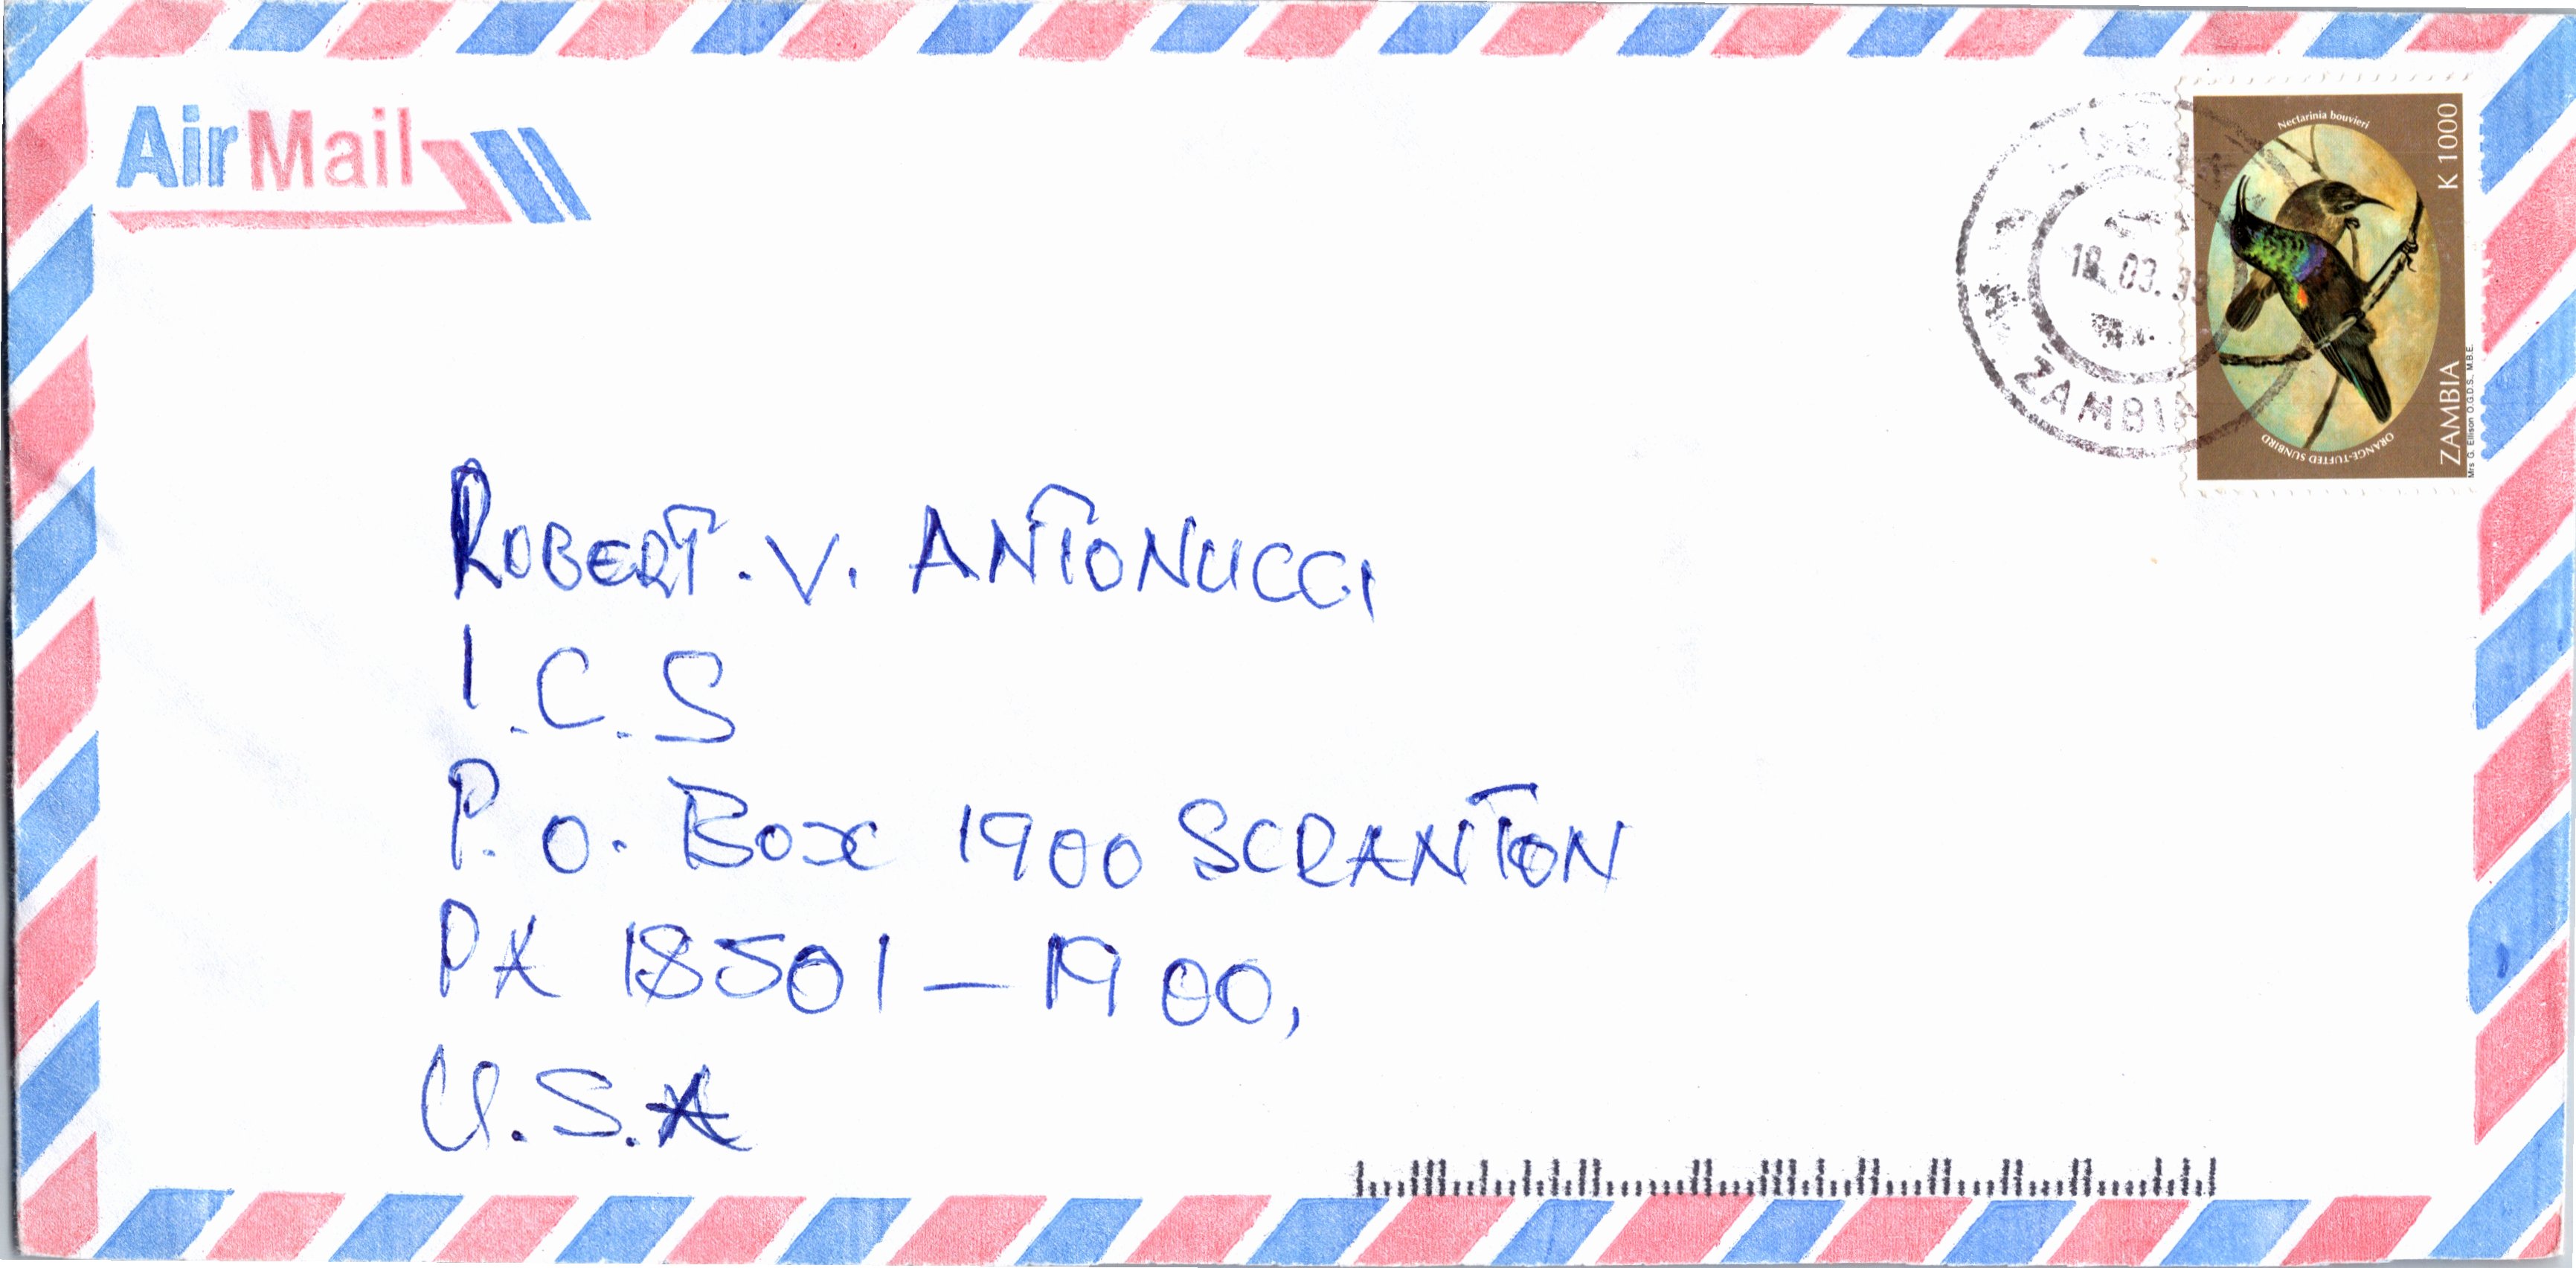 AirMail
ZAMBIA
Nectarinia bouvieri
K 1000
ORANGE-TUFTED SUNBIRD
ZAMBIA
Mrs G. Ellison O.G.D.S., M.B.E.
ROBERT. V. ANTONUCCI
I.C.S
P.O. Box 1900 SCRANTON
PA 18501-1900,
U.S.A